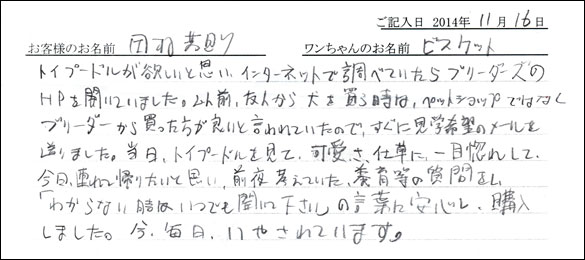 ご記入日 2014年 11月 16日
お客様のお名前 ワンちゃんのお名前 ビスケット
トイプードルが欲しいと思い、インターネットで調べていたらブリーダーズの
HPを開いていました。以前、友人から犬を買う時は、ペットショップではなく
ブリーダーから買った方が良いと言われていたので、すぐに見学希望のメールを
送りました。当日、トイプードルを見て、可愛さ、仕草に、一目惚れして、
今日、連れて帰りたいと思い、前夜考えていた、養育等の質問をし
「わからない時はいつでも聞いて下さい」の言葉に安心し、購入
しました。今、毎日、いやされています。